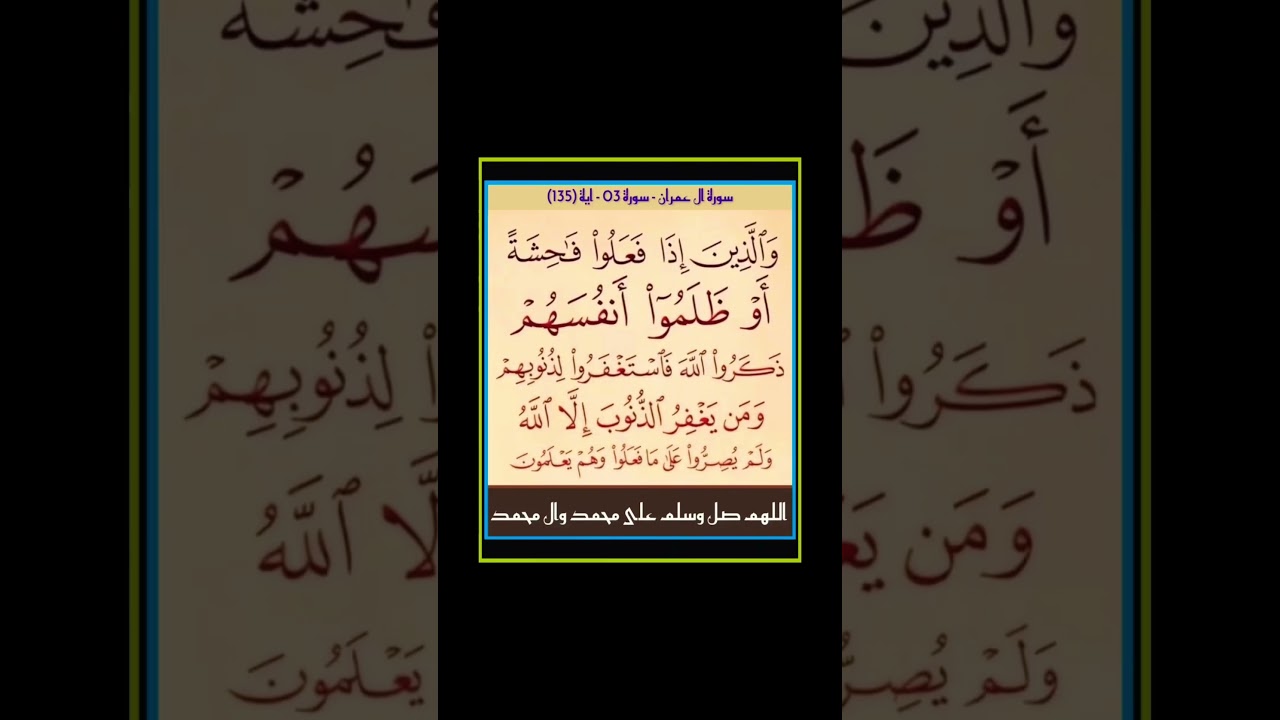 سورة ال عمران - سورة 03 - اية (135)
وَٱلَّذِينَ إِذَا فَعَلُوا۟ فَـٰحِشَةً
أَوْ ظَلَمُوٓا۟ أَنفُسَهُمْ
ذَكَرُوا۟ ٱللَّهَ فَٱسْتَغْفَرُوا۟ لِذُنُوبِهِمْ
وَمَن يَغْفِرُ ٱلذُّنُوبَ إِلَّا ٱللَّهُ
وَلَمْ يُصِرُّوا۟ عَلَىٰ مَا فَعَلُوا۟ وَهُمْ يَعْلَمُونَ
اللهم صل وسلم على محمد وال محمد